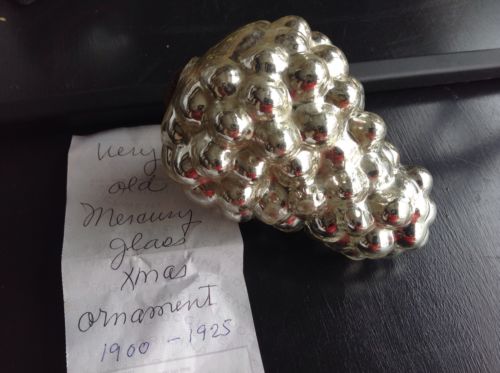 Very
old
Mercury
glass
Xmas
ornament
1900 - 1925